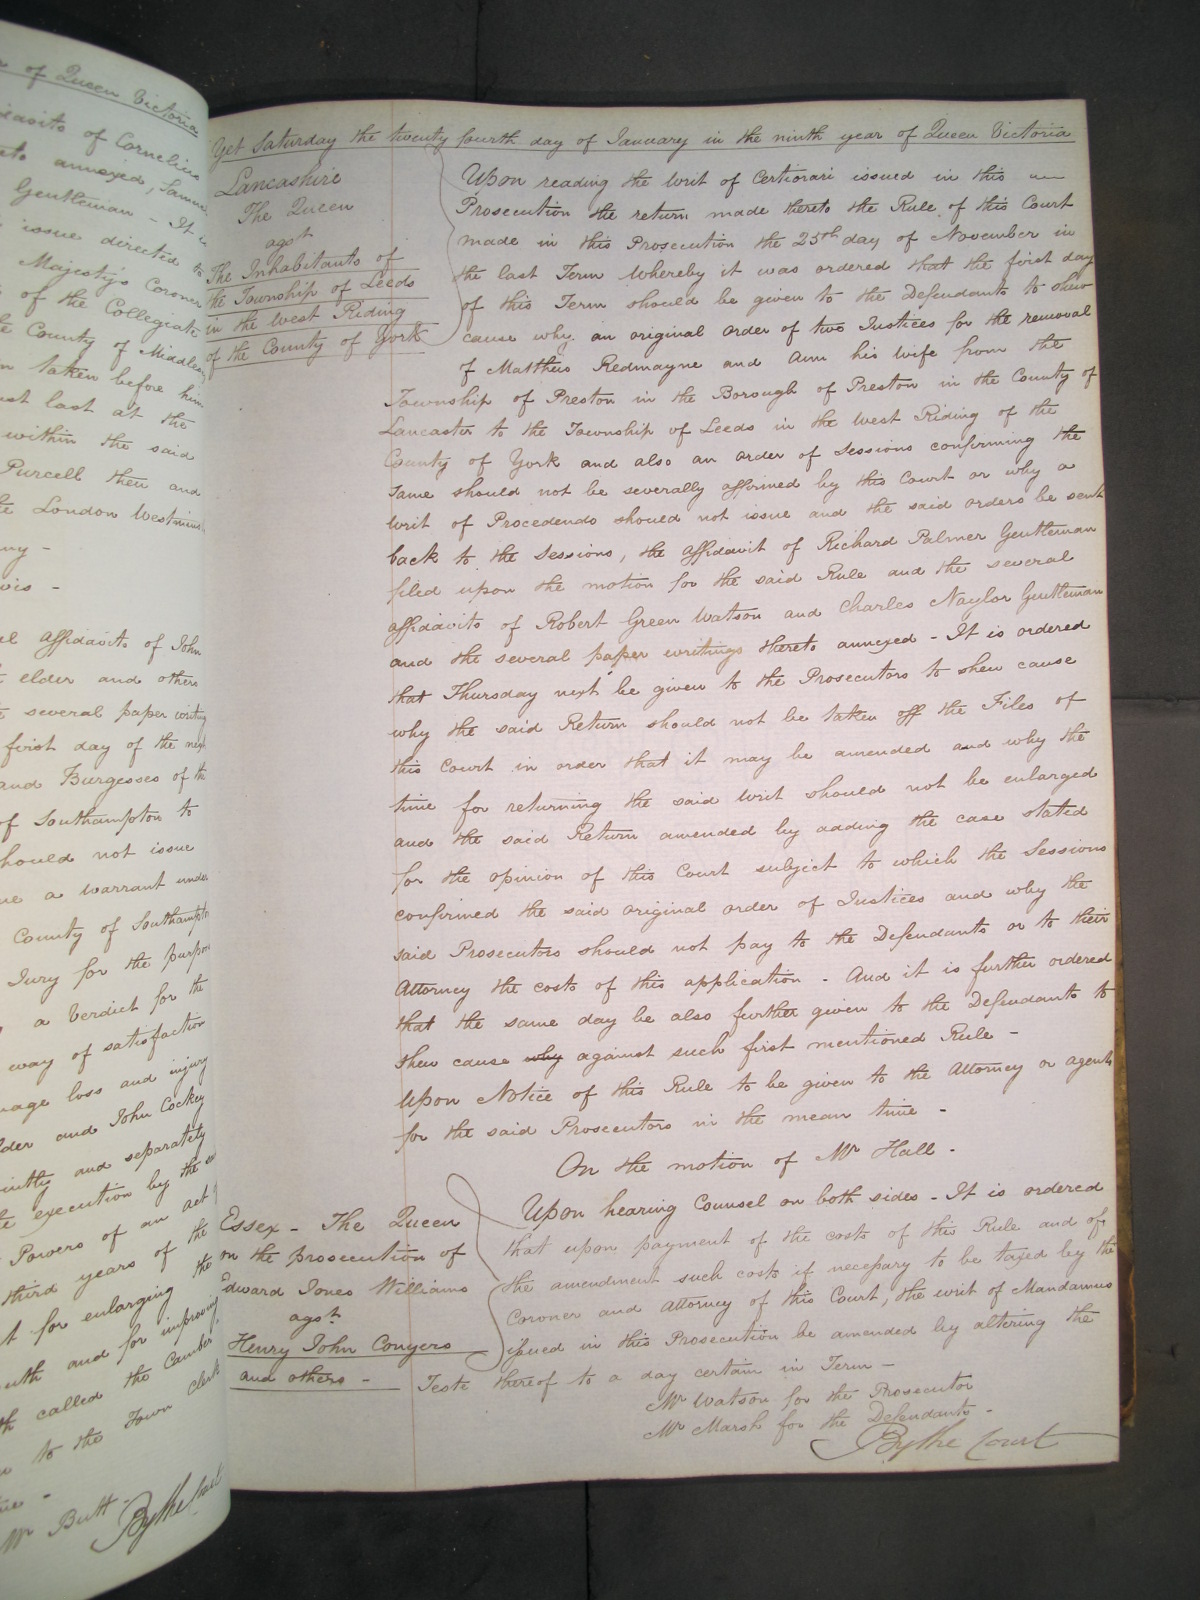 of Queen Victoria
of Cornelius
annexed,
Gentleman - It is
issue directed to
Majesty's Coroner
of the Collegiate
County of Middlesex
taken before him
last at the
within the said
Purcell then and
London Westmins
affidavits of John
elder and others
several paper writings
first day of the next
and Burgesses of the
of Southampton to
should not issue
a warrant under
County of Southampton
Jury for the purpose
a Verdict for the
way of satisfaction
loss and injury
and John Cockey
and separately
execution by the
Powers of an act
third years of the
for enlarging the
and for improving
called the Camber
to the Town Clerk
Mr Butt -
By the Court
Yet Saturday the twenty fourth day of January in the ninth year of Queen Victoria
Lancashire
The Queen
agst
The Inhabitants of
the Township of Leeds
in the West Riding
of the County of York
Upon reading the Writ of Certiorari issued in this
Prosecution the return made thereto the Rule of this Court
made in this Prosecution the 25th day of November in
the last Term whereby it was ordered that the first day
of this Term should be given to the Defendants to shew
cause why an original order of two Justices for the removal
of Matthew Redmayne and Ann his wife from the
Township of Preston in the Borough of Preston in the County of
Lancaster to the Township of Leeds in the West Riding of the
County of York and also an order of Sessions confirming the
same should not be severally affirmed by this Court or why a
Writ of Procedendo should not issue and the said orders be sent
back to the Sessions, the affidavit of Richard Palmer Gentleman
filed upon the motion for the said Rule and the several
affidavits of Robert Green Watson and Charles Naylor Gentleman
and the several paper writings thereto annexed - It is ordered
that Thursday next be given to the Prosecutors to shew cause
why the said Return should not be taken off the Files of
this Court in order that it may be amended and why the
time for returning the said Writ should not be enlarged
and the said Return amended by adding the case stated
for the opinion of this Court subject to which the Sessions
confirmed the said original order of Justices and why the
said Prosecutors should not pay to the Defendants or to their
Attorney the costs of this application - And it is further ordered
that the same day be also further given to the Defendants to
shew cause why against such first mentioned Rule -
Upon Notice of this Rule to be given to the Attorney or agents
for the said Prosecutors in the mean time -
On the motion of Mr Hall -
Essex - The Queen
on the prosecution of
Edward Jones Williams
agst
Henry John Conyers
and others -
Upon hearing Counsel on both sides - It is ordered
that upon payment of the costs of this Rule and of
the amendment such costs if necessary to be taxed by the
Coroner and Attorney of this Court, the writ of Mandamus
issued in this Prosecution be amended by altering the
Teste thereof to a day certain in Term -
Mr Watson for the Prosecutor
Mr Marsh for the Defendants -
By the Court